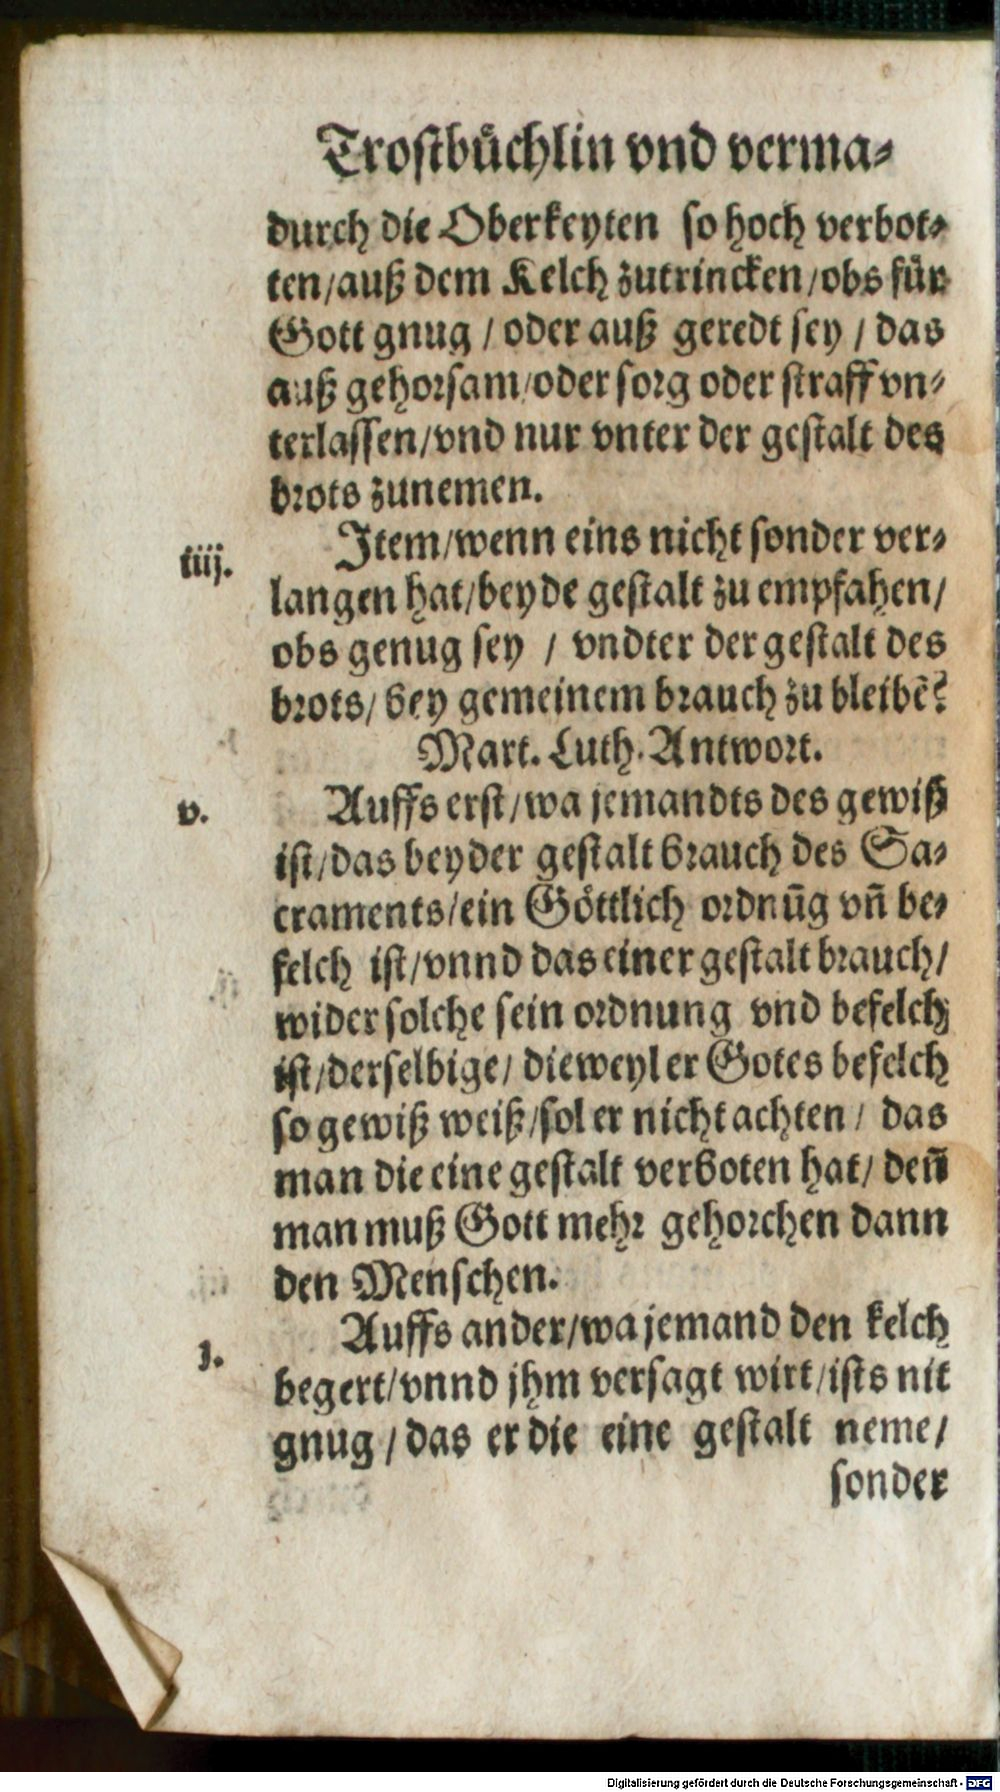 Trostbuͤchlin vnd verma⸗
durch die Oberkeyten so hoch verbot⸗
ten/auß dem Kelch zutrincken/obs fuͤr
Gott gnug / oder auß geredt sey / das
auß gehorsam/oder sorg oder straff vn⸗
terlassen/vnd nur vnter der gestalt des
brots zunemen.
Item/wenn eins nicht sonder ver⸗
iiij.
langen hat/beyde gestalt zu empfahen/
obs genug sey / vndter der gestalt des
brots/ bey gemeinem brauch zu bleibē?
Mart. Luth. Antwort.
Auffs erst/wa jemandts des gewiß
v.
ist/das beyder gestalt brauch des Sa⸗
craments/ein Goͤttlich ordnūg vn̄ be⸗
felch ist/vnnd das einer gestalt brauch/
wider solche sein ordnung vnd befelch
ist/derselbige/ dieweyl er Gotes befelch
so gewiß weiß/sol er nicht achten/ das
man die eine gestalt verboten hat/ den̄
man muß Gott mehr gehorchen dann
den Menschen.
Auffs ander/wa jemand den kelch
j.
begert/vnnd jhm versagt wirt/ists nit
gnug / das er die eine gestalt neme/
sonder
Digitalisierung gefördert durch die Deutsche Forschungsgemeinschaft - DFG